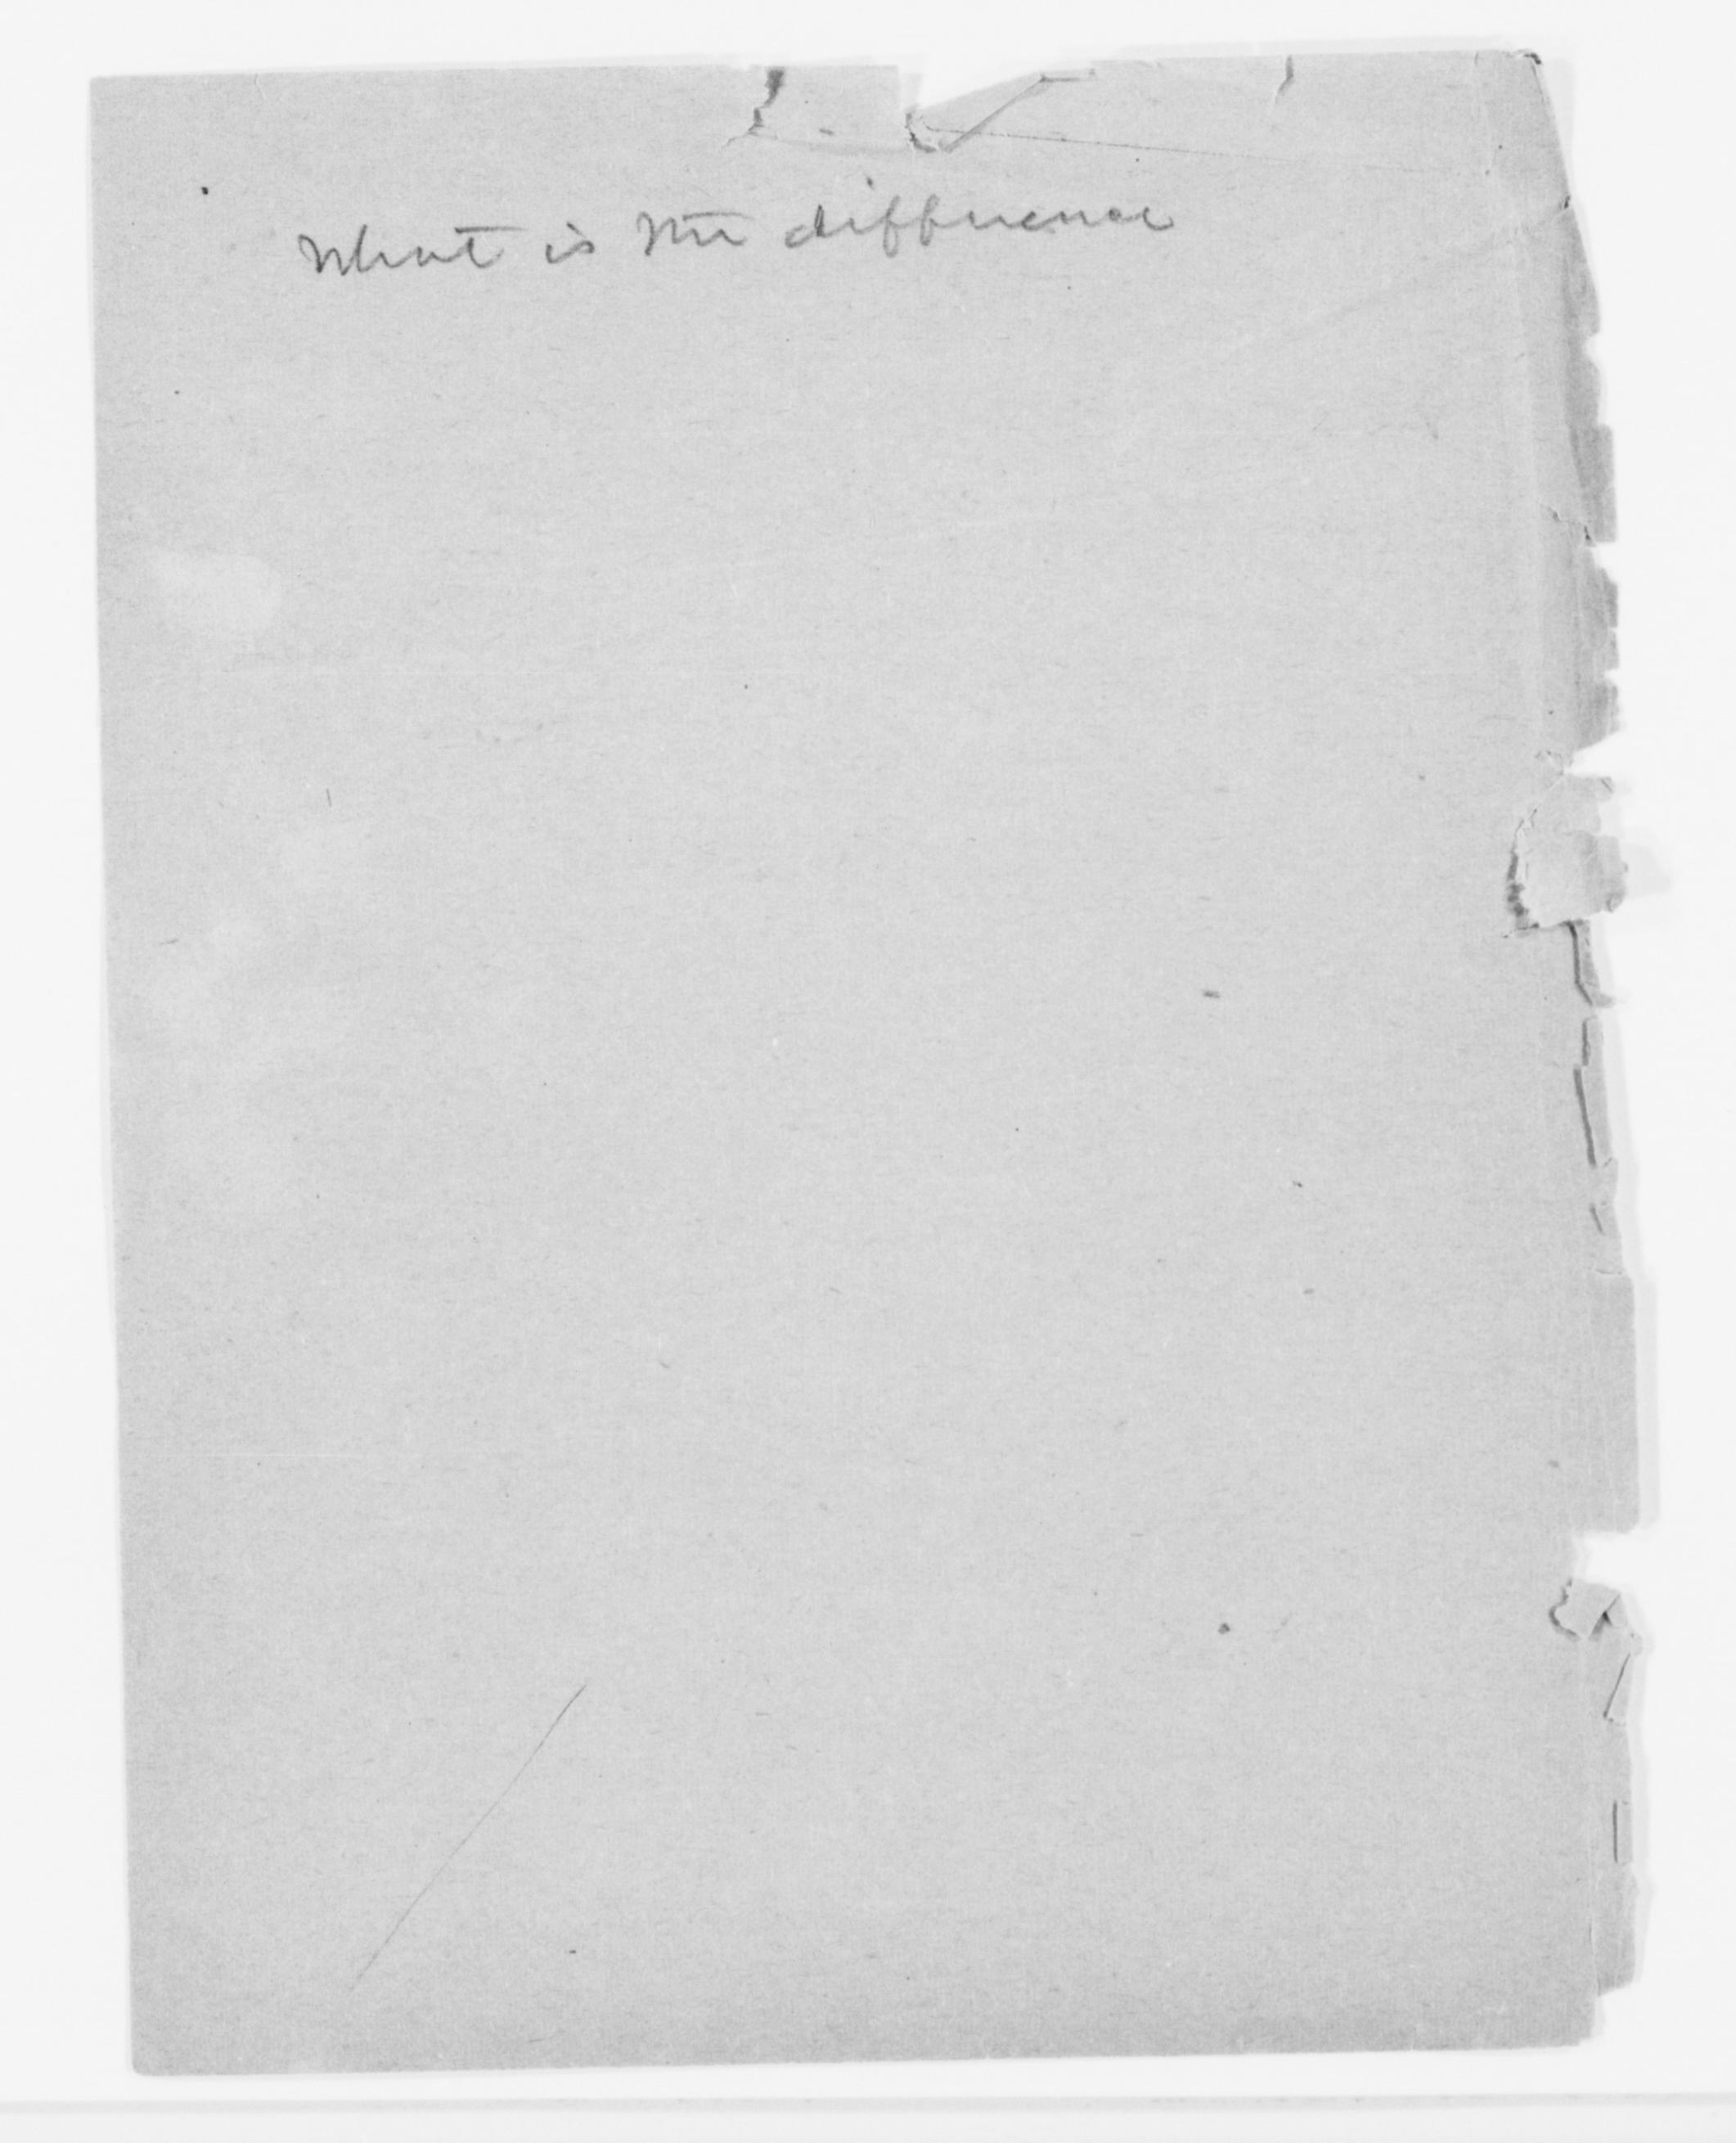 What is the difference